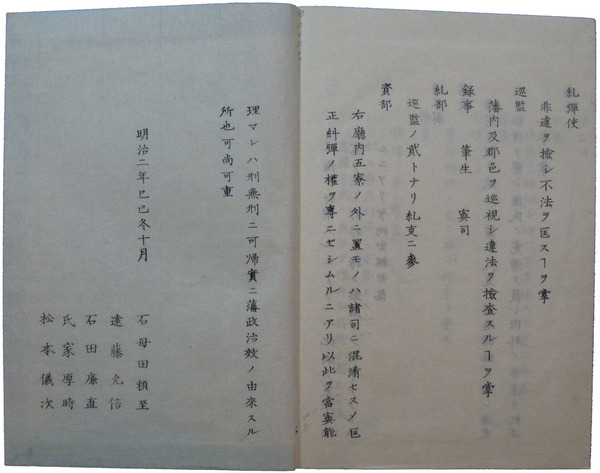 糺彈使
非違ヲ檢シ不法ヲ匡スヿヲ掌
巡監
藩内及郡邑ヲ巡視シ違法ヲ檢査スルヿヲ掌
録事 筆生 寮司
糺部
巡監ノ貮トナリ糺ニ參
部
右廳内五寮ノ外ニ置モノハ諸司ニ混淆セスメ匡
正糾彈ノ權ヲ專ニセシムルニアリ以此ヲ當寮能
理マレハ刑無刑ニ可歸實ニ藩政治效ノ由來スル
所也可尚可重
明治二年己巳冬十月
石母田頼至
遠藤允信
石田廉直
氏家厚時
松本儀次